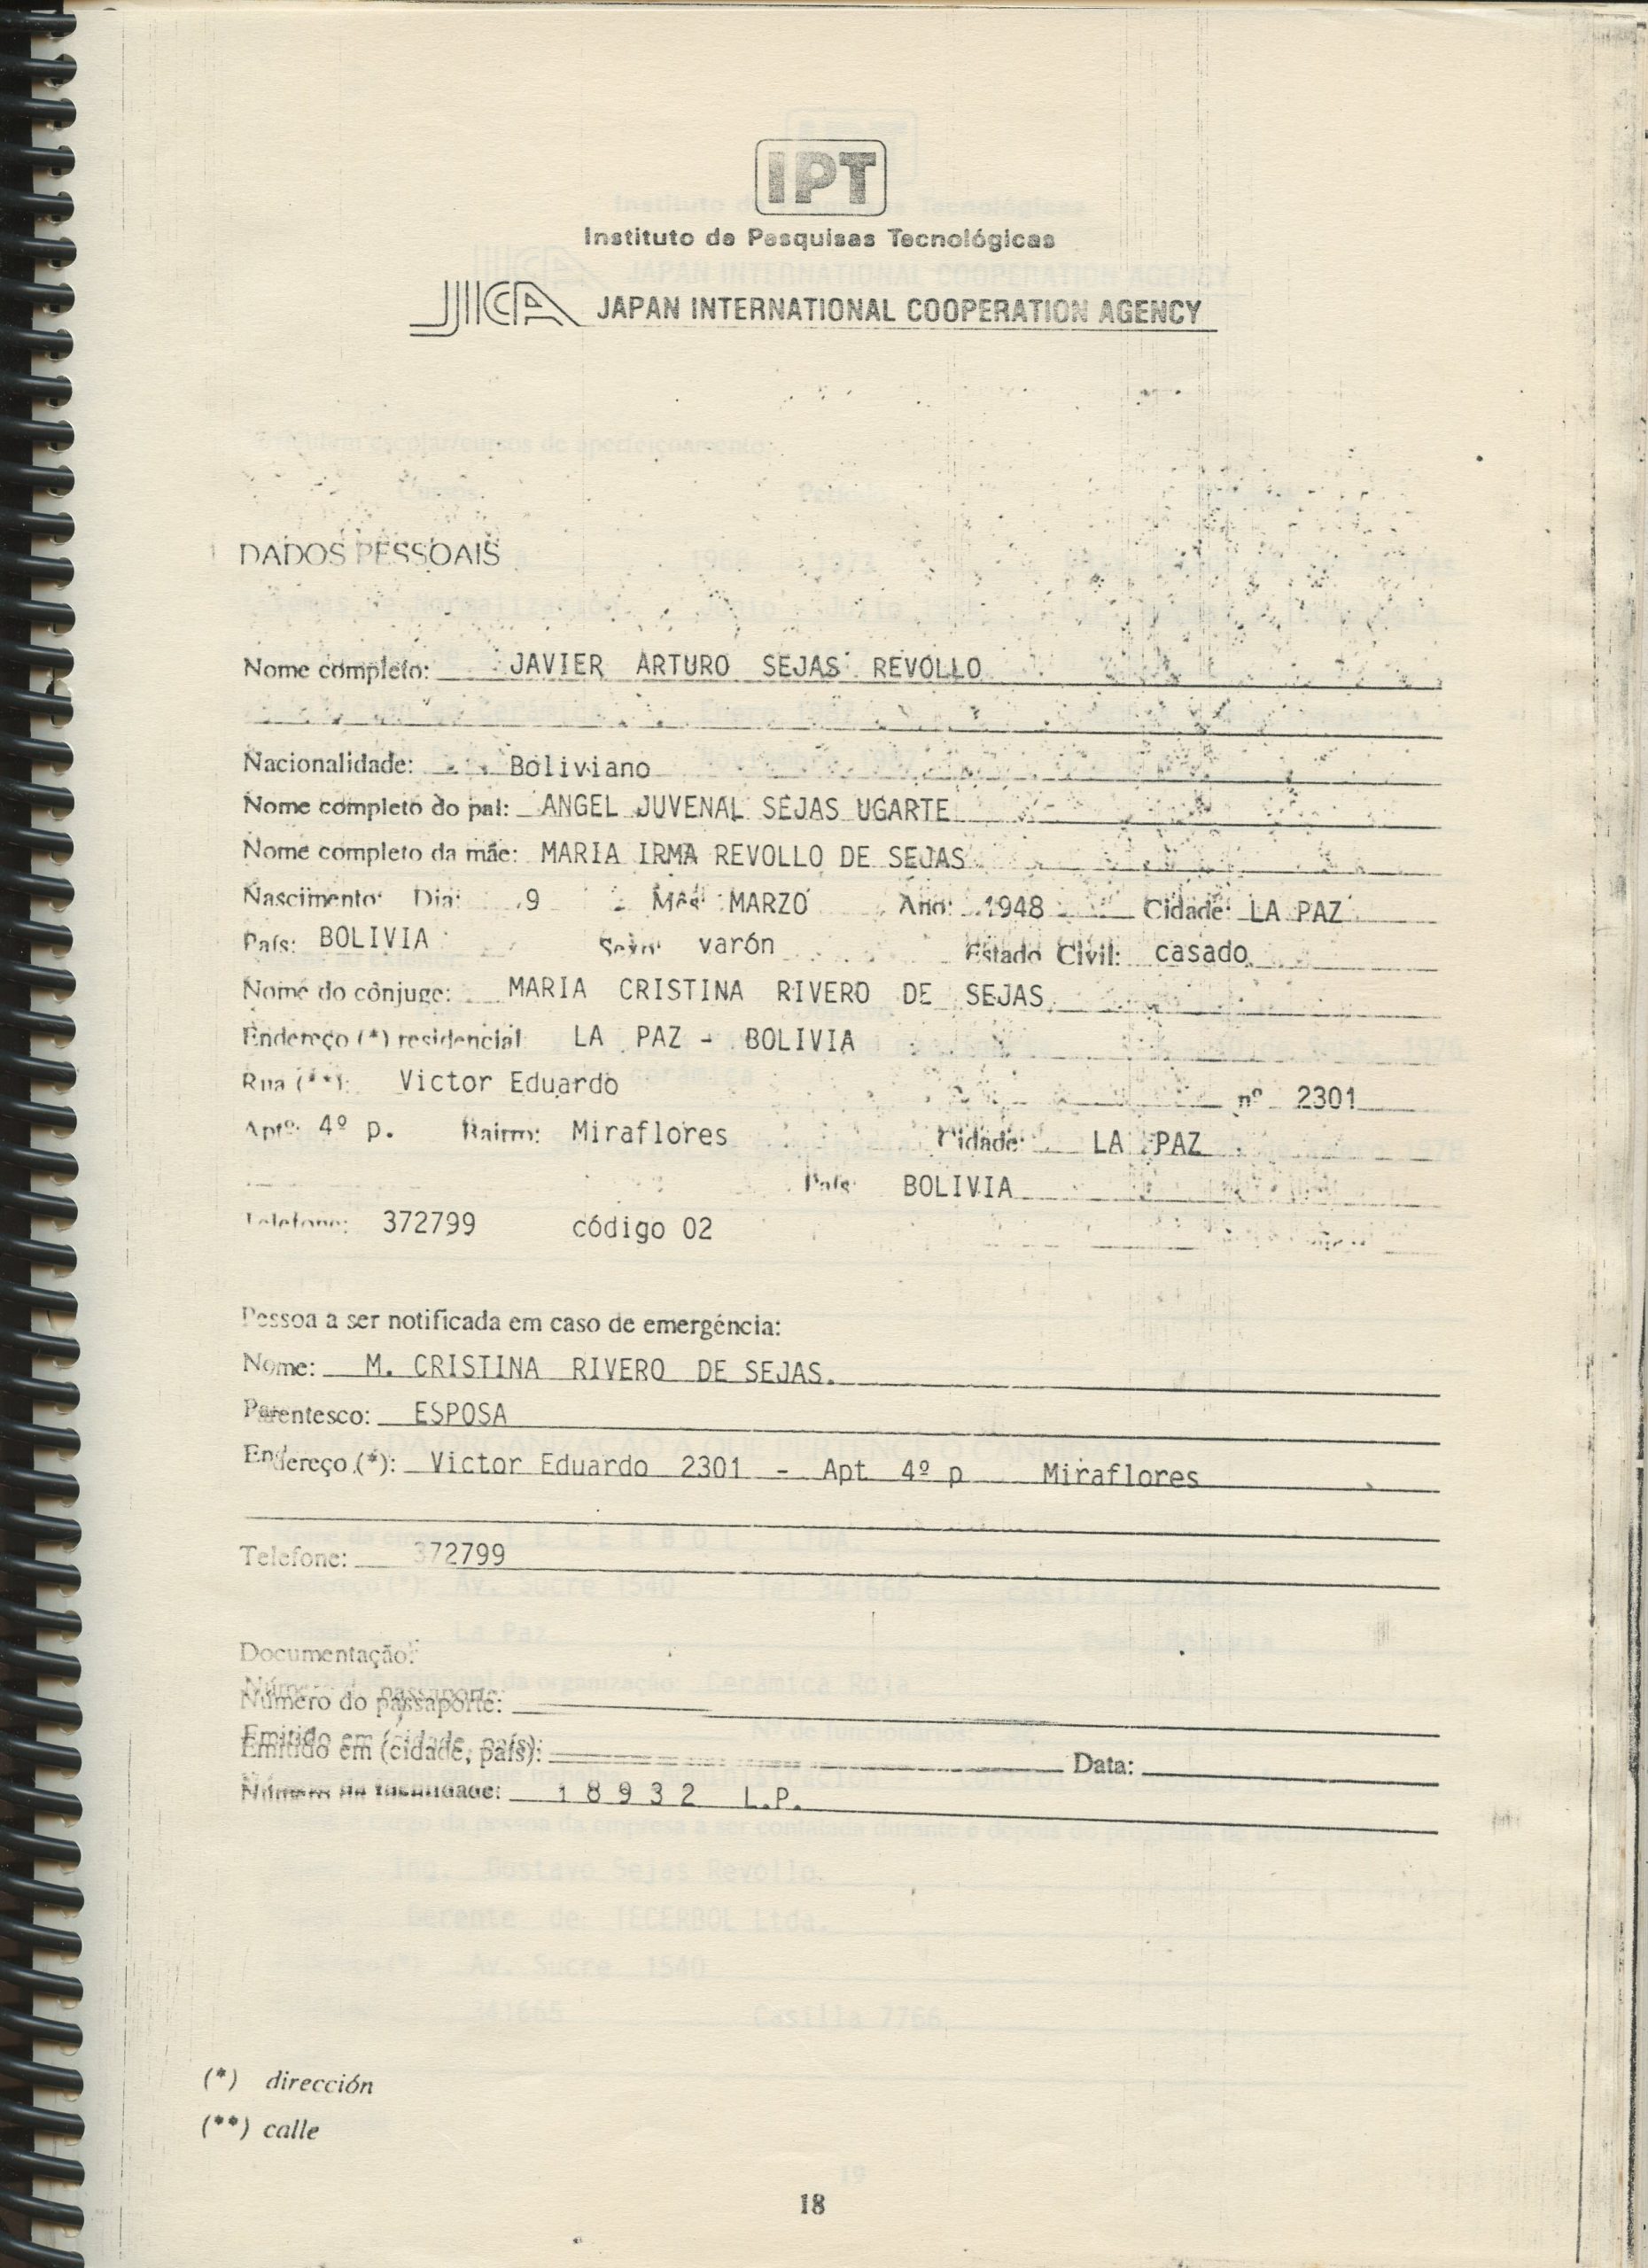 IPT
Instituto de Pesquisas Tecnológicas
JICA JAPAN INTERNATIONAL COOPERATION AGENCY
DADOS PESSOAIS
Nome completo: JAVIER ARTURO SEJAS REVOLLO
Nacionalidade: Boliviano
Nome completo do pai: ANGEL JUVENAL SEJAS UGARTE
Nome completo da mãe: MARIA IRMA REVOLLO DE SEJAS
Nascimento: Dia: 9 Mês: MARZO Ano: 1948 Cidade: LA PAZ
País: BOLIVIA Sexo: varón Estado Civil: casado
Nome do cônjuge: MARIA CRISTINA RIVERO DE SEJAS
Endereço (*) residencial: LA PAZ - BOLIVIA
Rua (**): Victor Eduardo nº 2301
Aptº: 4º p. Bairro: Miraflores Cidade: LA PAZ
País: BOLIVIA
Telefone: 372799 código 02
Pessoa a ser notificada em caso de emergência:
Nome: M. CRISTINA RIVERO DE SEJAS.
Parentesco: ESPOSA
Endereço (*): Victor Eduardo 2301 - Apt 4º p Miraflores
Telefone: 372799
Documentação:
Número do passaporte:
Emitido em (cidade, país): Data:
Número da 18932 L.P.
(*) dirección
(**) calle
18